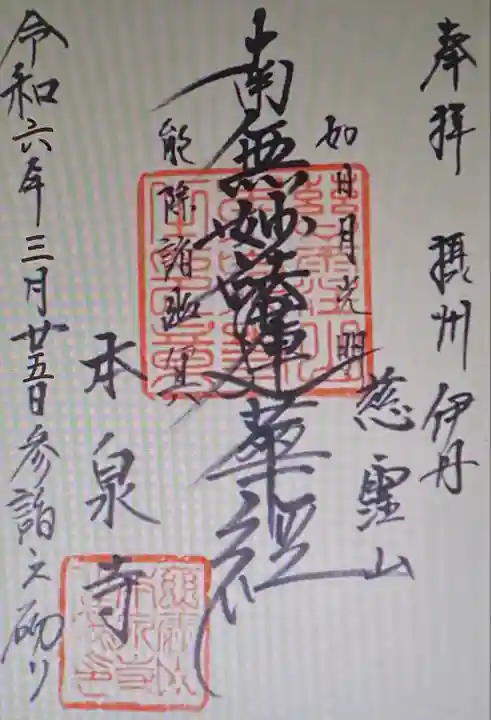 奉拝 摂州伊丹
慈霊山
如日月光明
南無妙法蓮華経
能除諸幽冥
本泉寺
令和六年三月廿五日参詣之砌リ